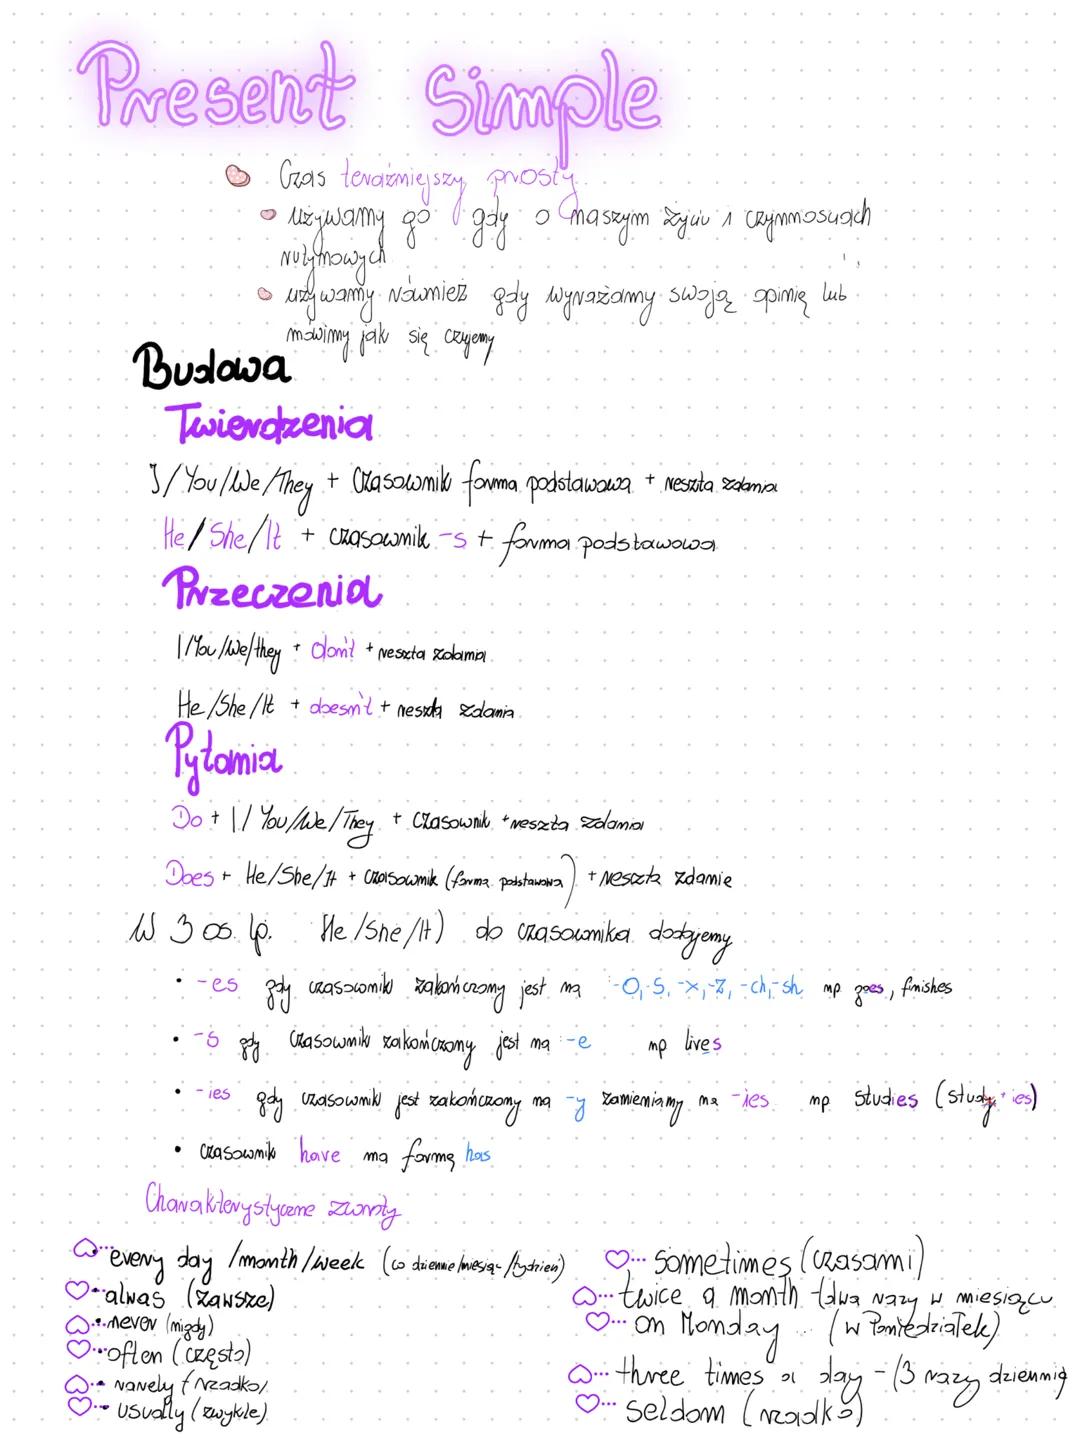 Present Simple
Czas teraźniejszy prosty
używamy go gdy o naszym życiu i czynnościach
rutynowych
używamy również gdy wyrażamy swoją opinię lub
mówimy jak się czujemy
Budowa
Twierdzenia
I/You/We/They + Czasownik forma podstawowa + reszta zdania
He/She/It + czasownik -s + forma podstawowa
Przeczenia
I/You/We/they + don't + reszta zdania
He/She/It + doesn't + reszta zdania
Pytania
Do + I/You/We/They + Czasownik + reszta zdania
Does + He/She/It + czasownik (forma podstawowa) + reszta zdanie
W 3 os. lp. He/She/It) do czasownika dodajemy
• -es gdy czasownik zakończony jest na -O,-S,-x,-z,-ch,-sh np goes, finishes
• -s gdy czasownik zakończony jest na -e np lives
• -ies gdy czasownik jest zakończony na -y zamieniamy na -ies np studies (study+ies)
• czasownik have ma formę has
Charakterystyczne zwroty
every day /month/week (co dziennie/miesiąc/tydzień)
alwas (zawsze)
never (nigdy)
often (często)
rarely (rzadko)
usually (zwykle)
sometimes (czasami)
twice a month (dwa razy w miesiącu
on Monday (w Poniedziałek)
three times a day - (3 razy dziennie
seldom (rzadko)